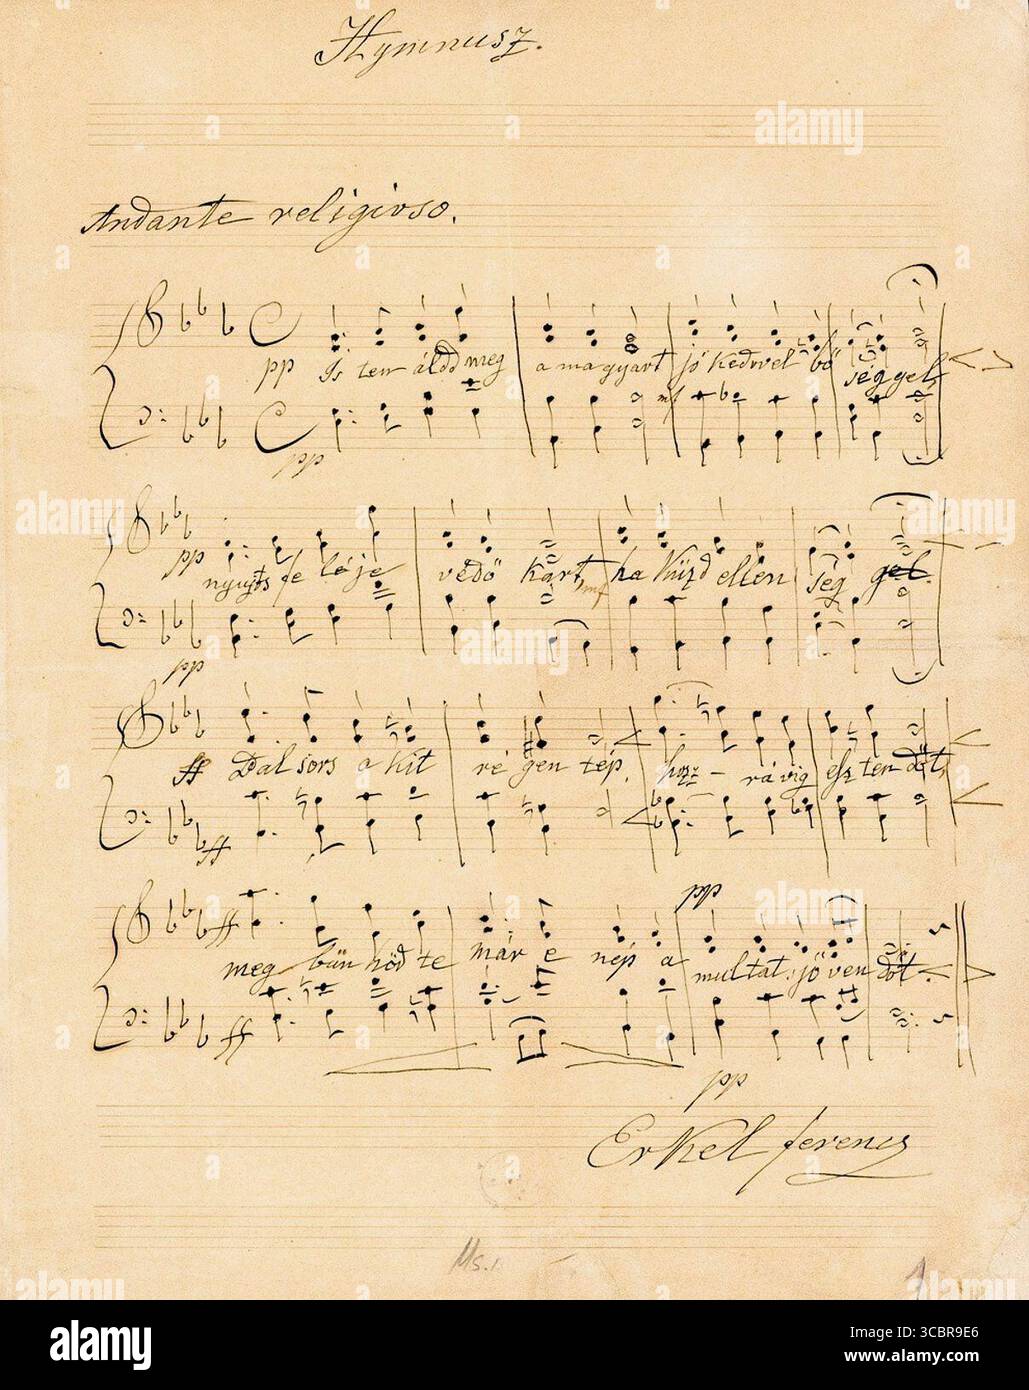 Hymnusz.
Andante religioso.
pp Is ten áldd meg a magyart mf jó kedvel bő séggel,
pp
pp nyujts fe léje védő kart mf ha küzd ellen ség gel.
pp
ff Bal sors a kit ré gen tép, hozz - rá víg esz ten dőt,
ff
pp
ff meg bűn hőd te már e nép a multat jöven dőt.
ff
pp
Erkel ferencz
Ms. 1
alamy
Image ID: 3CBR9E6
www.alamy.com